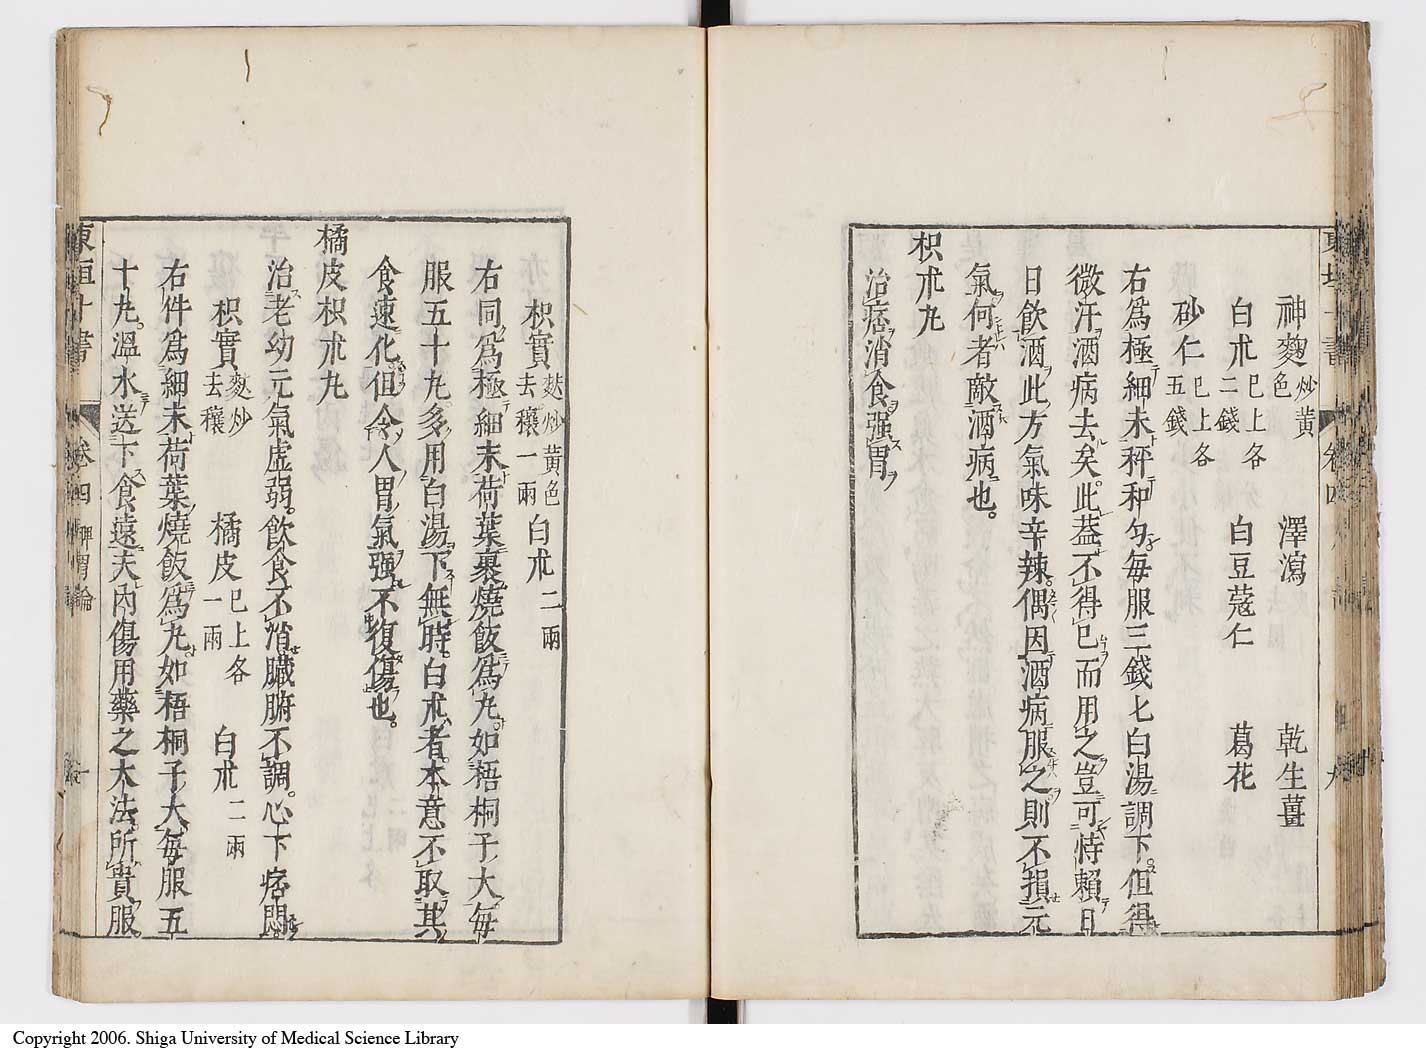 神麯炒黄色　澤瀉　乾生薑
白朮已上各二錢　白豆蔻仁　葛花
砂仁已上各五錢
右爲極細末秤和匀每服三錢匕白湯調下但得
微汗酒病去矣此葢不得已而用之豈可恃賴日
日飲酒此方氣味辛辣偶因酒病服之則不損元
氣何者敵酒病也。
枳朮丸
治痞消食强胃
枳實麩炒黄色去穰一兩　白朮二兩
右同爲極細末荷葉裹燒飯爲丸如梧桐子大每
服五十丸多用白湯下無時。白朮者本意不取其
食速化但令人胃氣强不復傷也。
橘皮枳朮丸
治老幼元氣虛弱。飲食不消臟腑不調。心下痞悶。
枳實麩炒去穰　橘皮已上各一兩　白朮二兩
右件爲細末荷葉燒飯爲丸如梧桐子大每服五
十丸。溫水送下食遠夫内傷用藥之大法所貴服
東垣十書　卷四　脾胃論
Copyright 2006. Shiga University of Medical Science Library